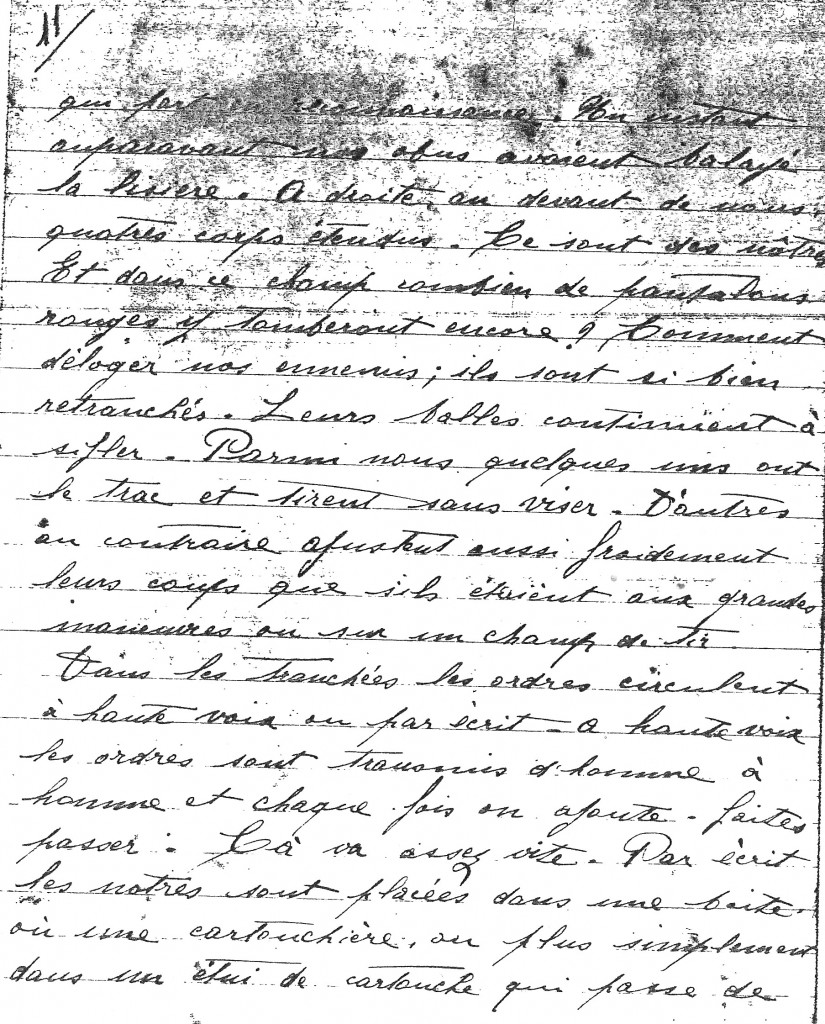 11/
qui part en reconnaissance. Un instant
auparavant nos obus avaient balayé
la lisière. A droite, au devant de nous,
quatres corps étendus. Ce sont des nôtres
Et dans ce champ combien de pantalons
rouges y tomberont encore ? Comment
déloger nos ennemis ; ils sont si bien
retranchés. Leurs balles continuent à
siffler. Parmi nous quelques uns ont
le trac et tirent sans viser. D'autres
au contraire ajustent aussi froidement
leurs coups que s'ils étaient aux grandes
manœuvres ou sur un champ de tir.
Dans les tranchées les ordres circulent
à haute voix ou par écrit. a haute voix
les ordres sont transmis d'homme à
homme et chaque fois on ajoute. faites
passer. Cà va assez vite. Par écrit
les notres sont placées dans une boite.
où une cartouchière, ou plus simplement
dans un étui de cartouche qui passe de